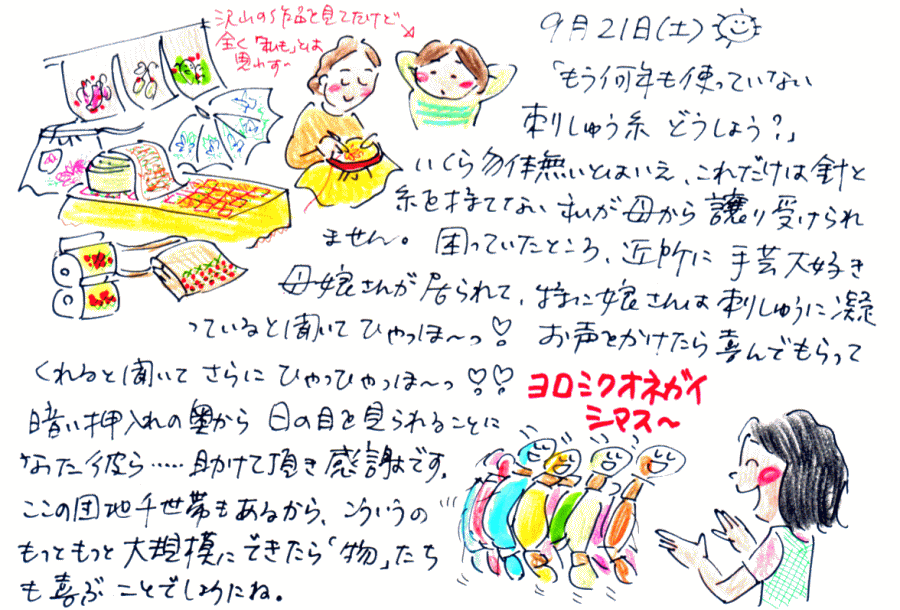 沢山の作品を見てたけど
全く「私も」とは
思わず~
9月21日(土)
「もう何年も使っていない
刺しゅう糸 どうしよう?」
いくら勿体無いとはいえ、これだけは針と
糸を持てない私が母から譲り受けられ
ません。困っていたところ、近所に手芸大好き
母娘さんが居られて、特に娘さんは刺しゅうに凝
っていると聞いてひゃっほ~っ♡ お声をかけたら喜んでもらって
くれると聞いてさらにひゃっひゃっほ~っ♡♡
暗い押入れの奥から日の目を見られることに
なった彼ら……助けて頂き感謝です。
ここの団地千世帯もあるから、こういうの
もっともっと大規模にできたら「物」たち
も喜ぶことでしょうにね。
ヨロシクオネガイ
シマス~